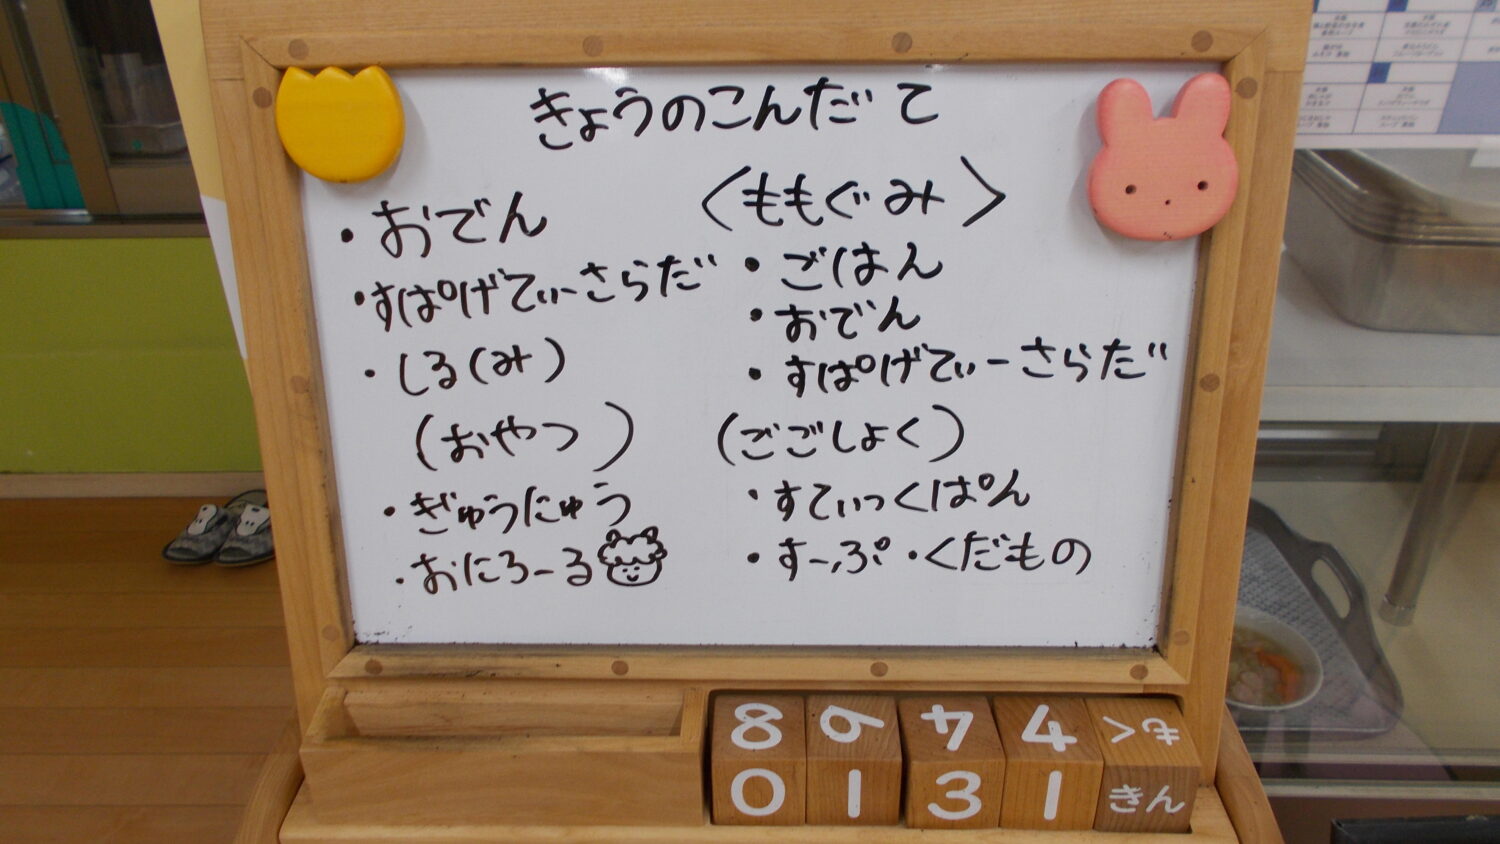 きょうのこんだて
・おでん
・すぱげてぃーさらだ
・しる(み)
(おやつ)
・ぎゅうにゅう
・おにろーる
〈ももぐみ〉
・ごはん
・おでん
・すぱげてぃーさらだ
(ごごしょく)
・すてぃっくぱん
・すーぷ・くだもの
8 6 4 4 もく
0 1 3 1 きん